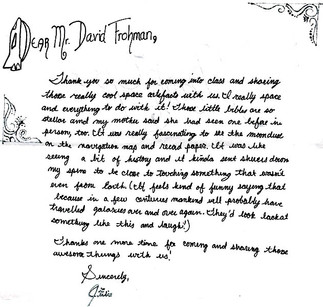 Dear Mr. David Frohman,
Thank you so much for coming into class and sharing
those really cool space artefacts with us. I really space
and everything to do with it! Those little bibles are so
stellar and my mother said she had seen one before in
person, too. It was really fascinating to see the moondust
on the navigation map and record paper. It was like
seeing a bit of history and it kinda sent shivers down
my spine to be close to touching something that wasn't
even from Earth. (It feels kind of funny saying that
because in a few centuries mankind will probably have
travelled galaxies over and over again. They'd look back at
something like this and laugh!)
Thanks one more time for coming and sharing those
awesome things with us!
Sincerely,